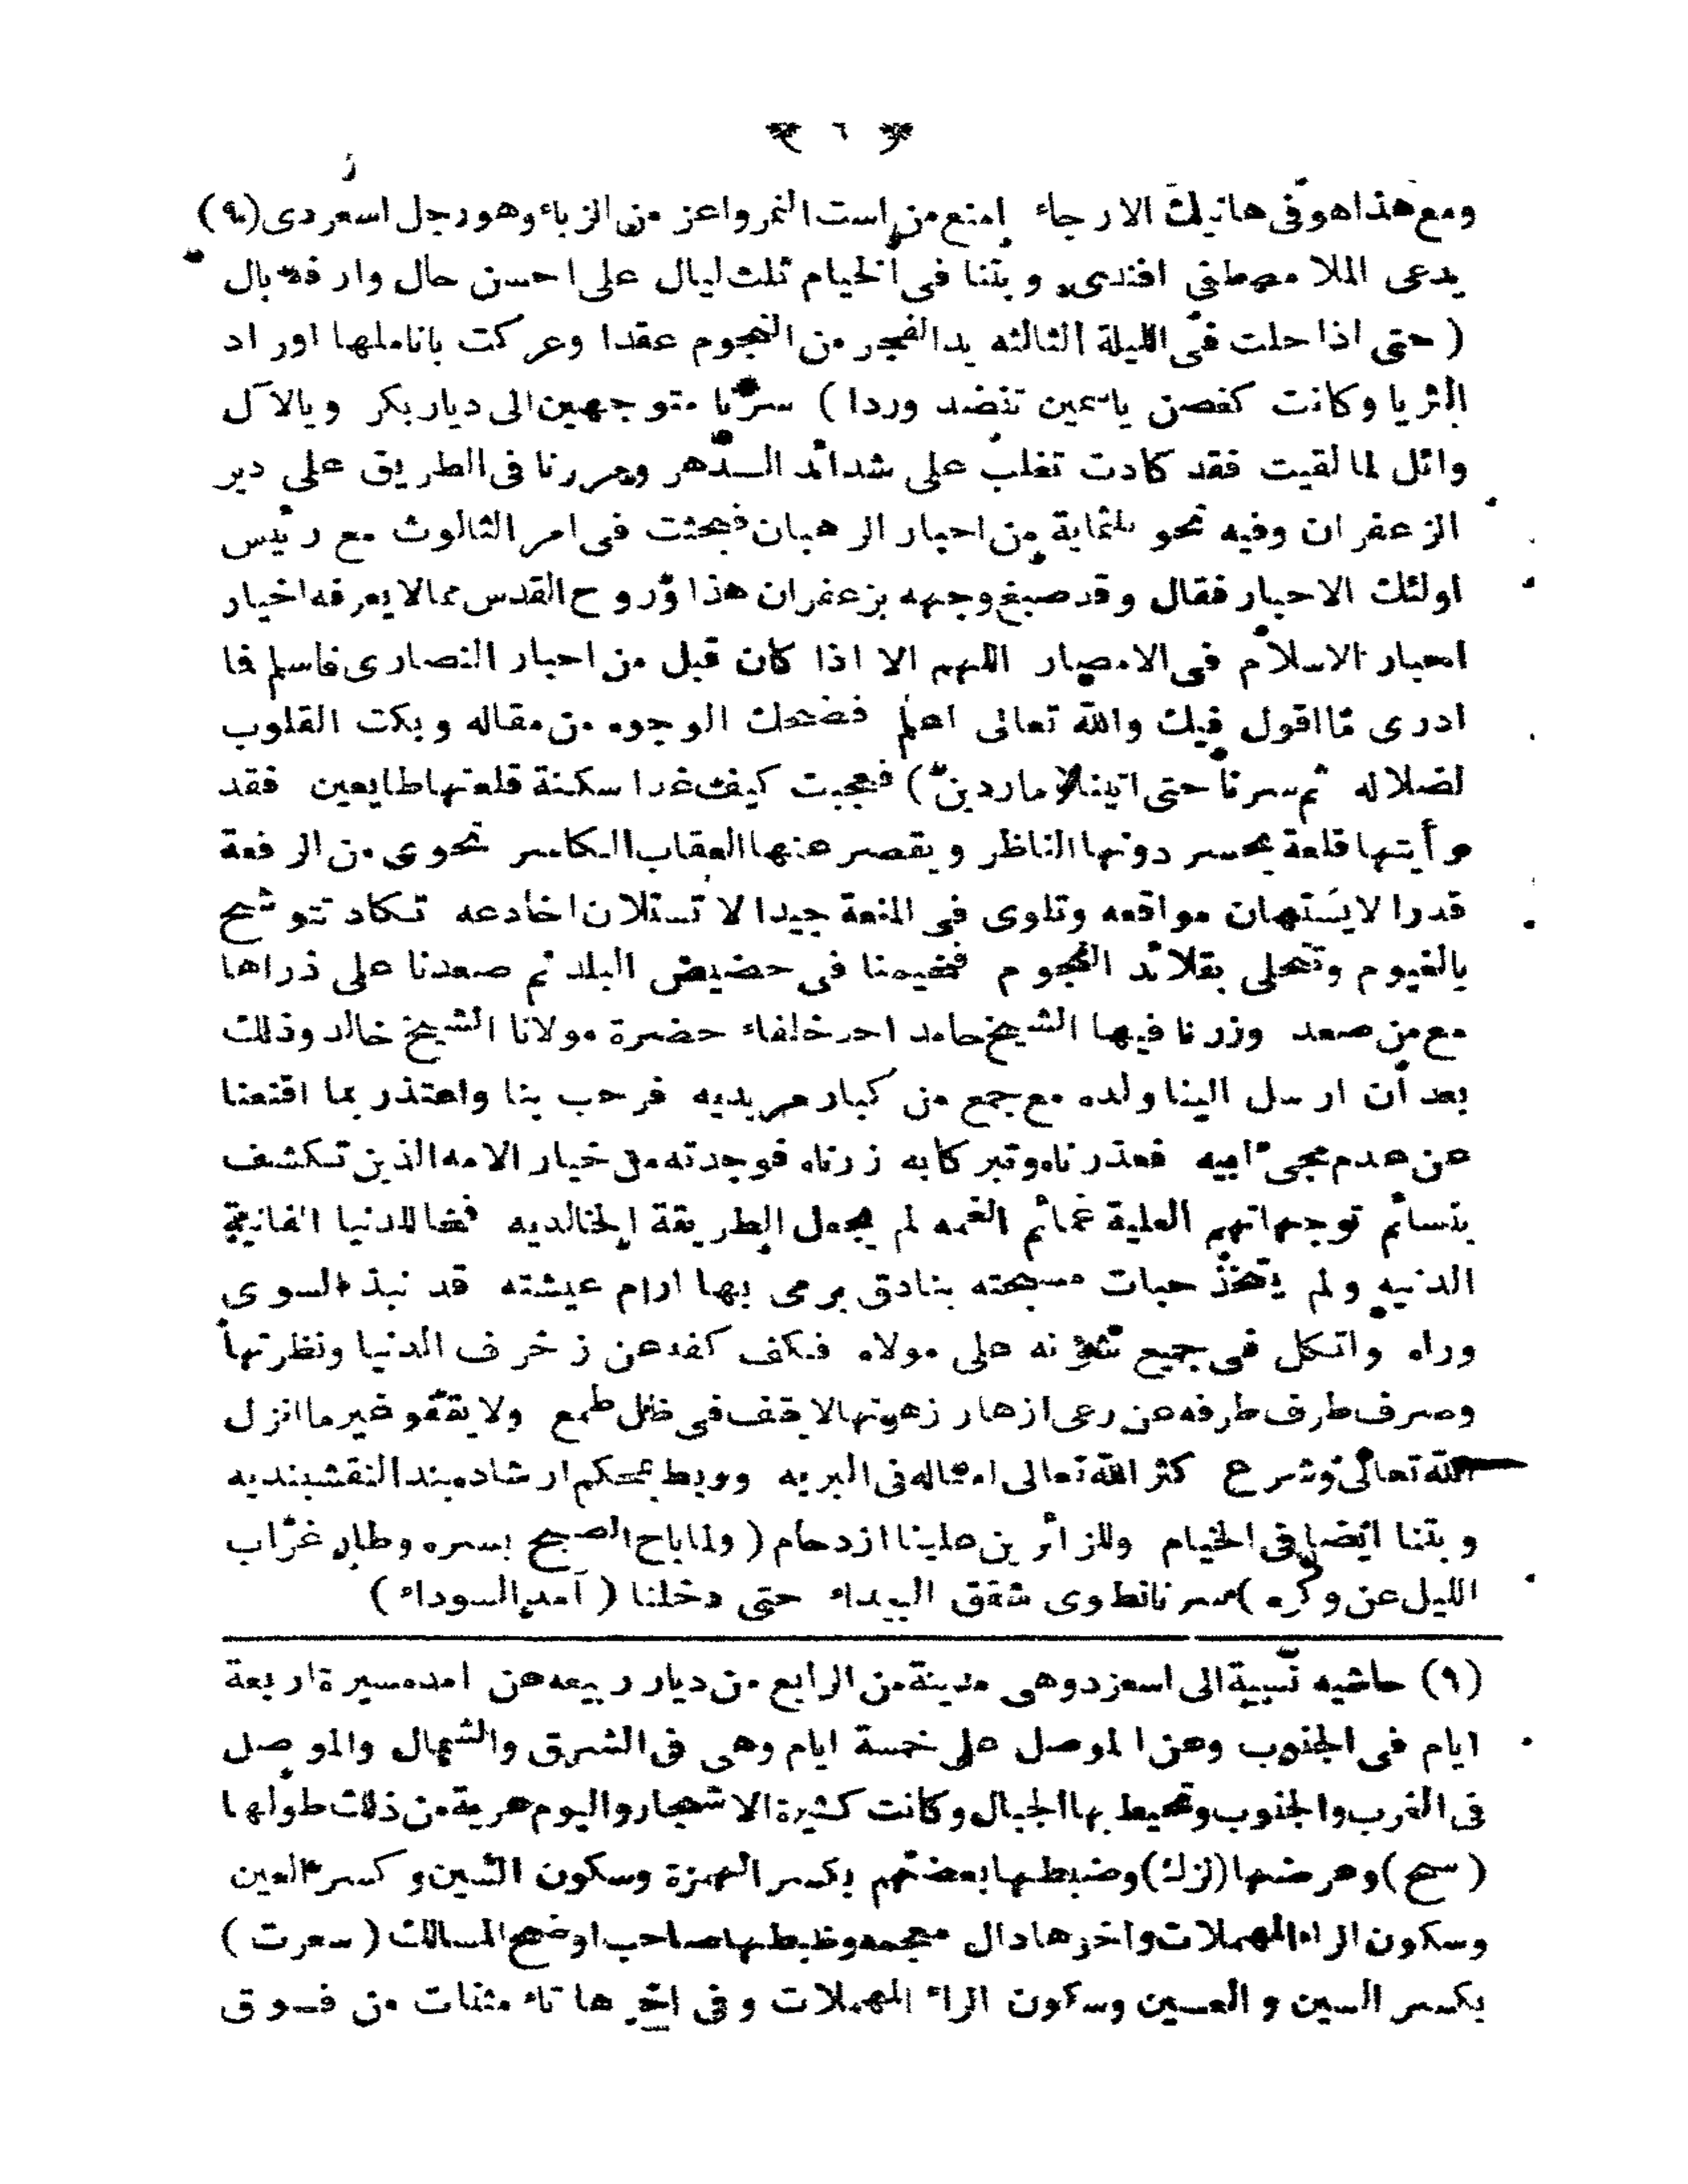 ٦
ومع هذا هو فى هاتيك الارجاء امنع من است النمر واعز من الزباء وهو رجل اسعردى (٩)
يدعى الملا مصطفى افندى وبتنا فى الخيام ثلث ليال على احسن حال وارفه بال
( حتى اذا حلت فى الليلة الثالثه يد الفجر من النجوم عقدا وعركت باناملها اوراد
الثريا وكانت كغصن ياسمين تنضد وردا ) سرنا متوجهين الى ديار بكر ويالآل
وائل لما لقيت فقد كادت تغلب على شدائد الــدهر ومررنا فى الطريق على دير
الزعفران وفيه نحو ثلثماية من احبار الرهبان فبحثت فى امر الثالوث مع رئيس
اولئك الاحبار فقال وقد صبغ وجهه بزعفران هذا وروح القدس مما لا يعرفه اخيار
احبار الاسلام فى الامصار اللهم الا اذا كان قبل من احبار النصارى فاسلم فما
ادرى ما اقول فيك والله تعالى اعلم فضحك الوجوه من مقاله وبكت القلوب
لضلاله ثم سرنا حتى اتينا ( ماردين ) فعجبت كيف غدا سكنة قلعتها طايعين فقد
رأيتها قلعة يحسر دونها الناظر ويقصر عنها العقاب الكاسر تحوى من الرفعة
قدرا لا يستهان مواقعه وتلوى فى المنعة جيدا لا تستلان اخادعه تكاد تتوشح
بالغيوم وتتحلى بقلائد النجوم فخيمنا فى حضيض البلد ثم صعدنا على ذراها
مع من صعد وزرنا فيها الشيخ حامد احد خلفاء حضرة مولانا الشيخ خالد وذلك
بعد أن ارسل الينا ولده مع جمع من كبار مريديه فرحب بنا واعتذر بما اقنعنا
عن عدم مجئ ابيه فعذرناه وتبركا به زرناه فوجدته من خيار الامه الذين تكشف
بنسائم توجهاتهم العلية غمائم الغمه لم يجعل الطريقة الخالديه فخا للدنيا الفانية
الدنيه ولم يتخذ حبات مسبحته بنادق يرمى بها ارام عيشته قد نبذ السوى
وراه واتكل فى جميع شؤنه على مولاه فكف كفه عن زخرف الدنيا ونظرتها
وصرف طرف طرفه عن رعى ازهار زهرتها لا يقف فى ظل طمع ولا يقفو غير ما انزل
الله تعالى وشرع كثر الله تعالى امثاله فى البريه وربط بمحكم ارشاده بند النقشبنديه
وبتنا ايضا فى الخيام وللزائرين علينا ازدحام ( ولما باح الصبح بسره وطار غراب
الليل عن وكره ) سرنا نطوى شقق البيداء حتى دخلنا ( آمد السوداء )
(٩) حاشيه نسبة الى اسعرد وهى مدينة من الرابع من ديار ربيعه عن امد مسيرة اربعة
ايام فى الجنوب وعن الموصل على خمسة ايام وهى فى الشرق والشمال والموصل
فى الغرب والجنوب وتحيط بها الجبال وكانت كثيرة الاشجار واليوم عرية من ذلك طولها
( سح ) وعرضها (لزك) وضبطها بعضهم بكسر الهمزة وسكون السين وكسر العين
وسكون الراء المهملات واخرها دال معجمه وضبطها صاحب اوضح المسالك ( سعرت )
بكسر السين و العــين وسكون الراء المهملات وفى اخرها تاء مثنات من فــوق